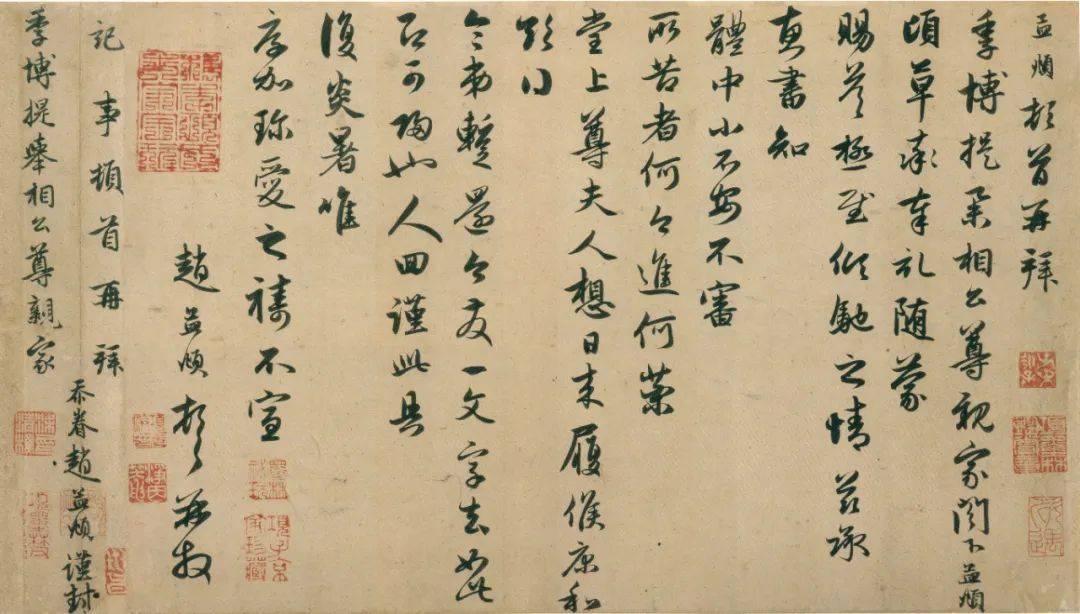 孟頫頓首再拜
季博提舉相公尊親家閣下孟頫
頃草率奉札随蒙
賜答極至傾馳之情茲承
惠書知
體中小不安不審
所苦者何今進何藥
堂上尊夫人想日來履候康和
日
暫還今友一文字去如此
可此人回謹此具
復炎暑唯
序加珍愛之禱不宣
趙孟頫頓首再拜
記事頓首再拜
季博提舉相公尊親家
忝眷趙孟頫謹封